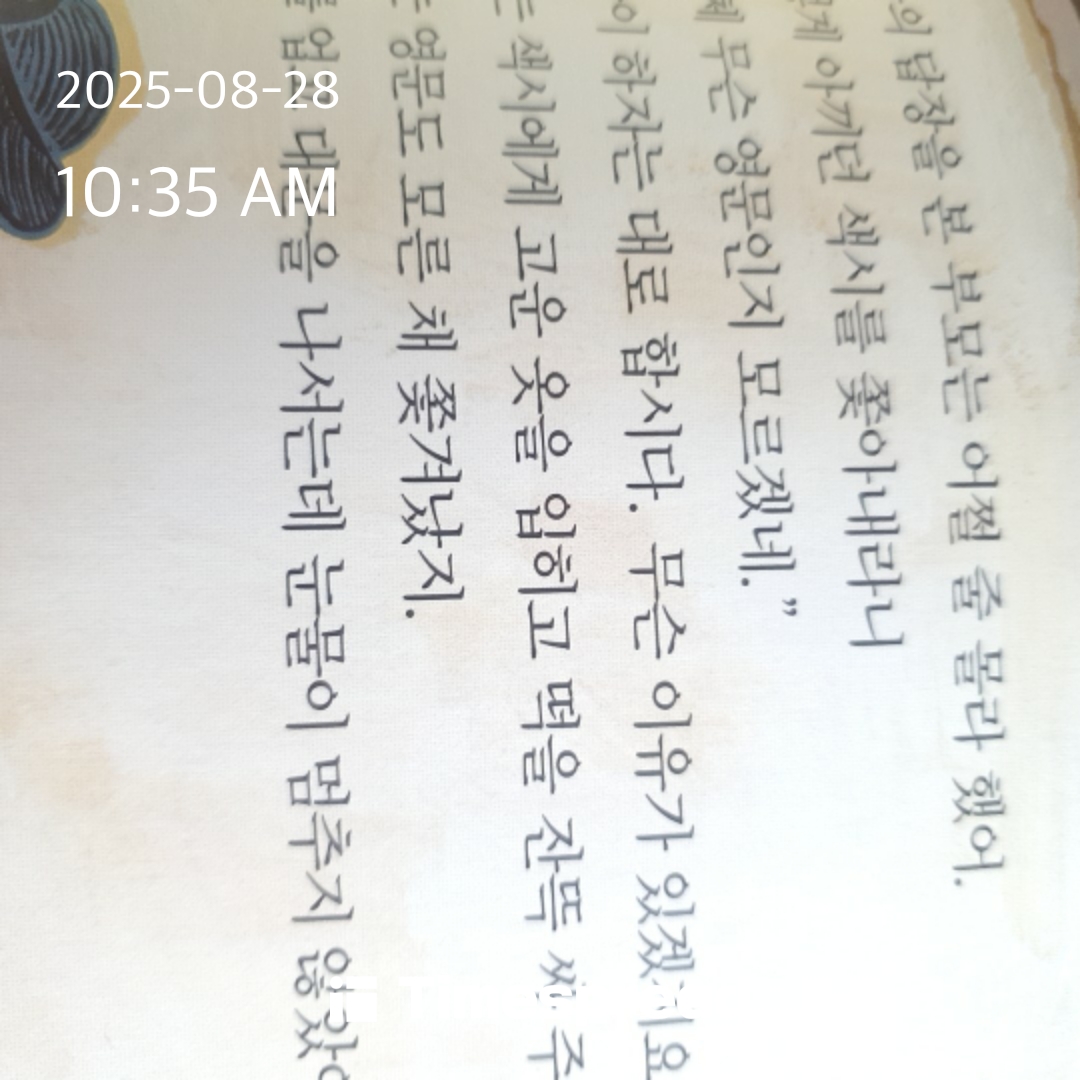 2025-08-28
10:35 AM
답장을 본 부모는 어쩔 줄 몰라 했어.
아끼던 색시를 쫓아내라니
무슨 영문인지 모르겠네."
하자는 대로 합시다. 무슨 이유가
색시에게 고운 옷을 입히고 떡을 잔뜩 싸 주
영문도 모른 채 쫓겨났지.
나서는데 눈물이 멈추지